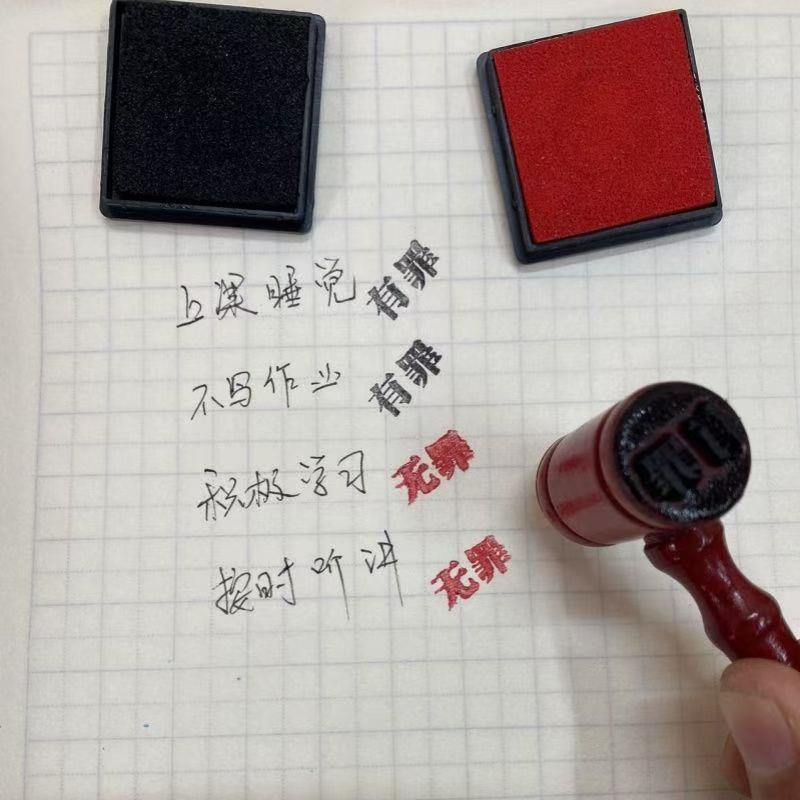 上课睡觉 有罪
不写作业 有罪
积极学习 无罪
按时听讲 无罪